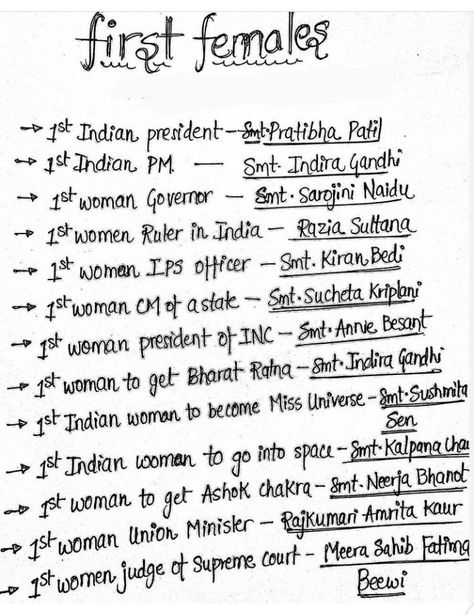 first females
→ 1st Indian president - Smt. Pratibha Patil
→ 1st Indian PM. — Smt. Indira Gandhi
→ 1st woman Governor — Smt. Sarojini Naidu
→ 1st women Ruler in India — Razia Sultana
→ 1st woman IPS officer — Smt. Kiran Bedi
→ 1st woman CM of a state — Smt. Sucheta Kriplani
→ 1st woman president of INC — Smt. Annie Besant
→ 1st woman to get Bharat Ratna — Smt. Indira Gandhi
→ 1st Indian woman to become Miss Universe - Smt. Sushmita
Sen
→ 1st Indian woman to go into space - Smt. Kalpana Cha
→ 1st woman to get Ashok chakra - Smt. Neerja Bhanot
→ 1st woman Union Minister — Rajkumari Amrita Kaur
→ 1st women judge of Supreme court - Meera Sahib Fatima
Beewi